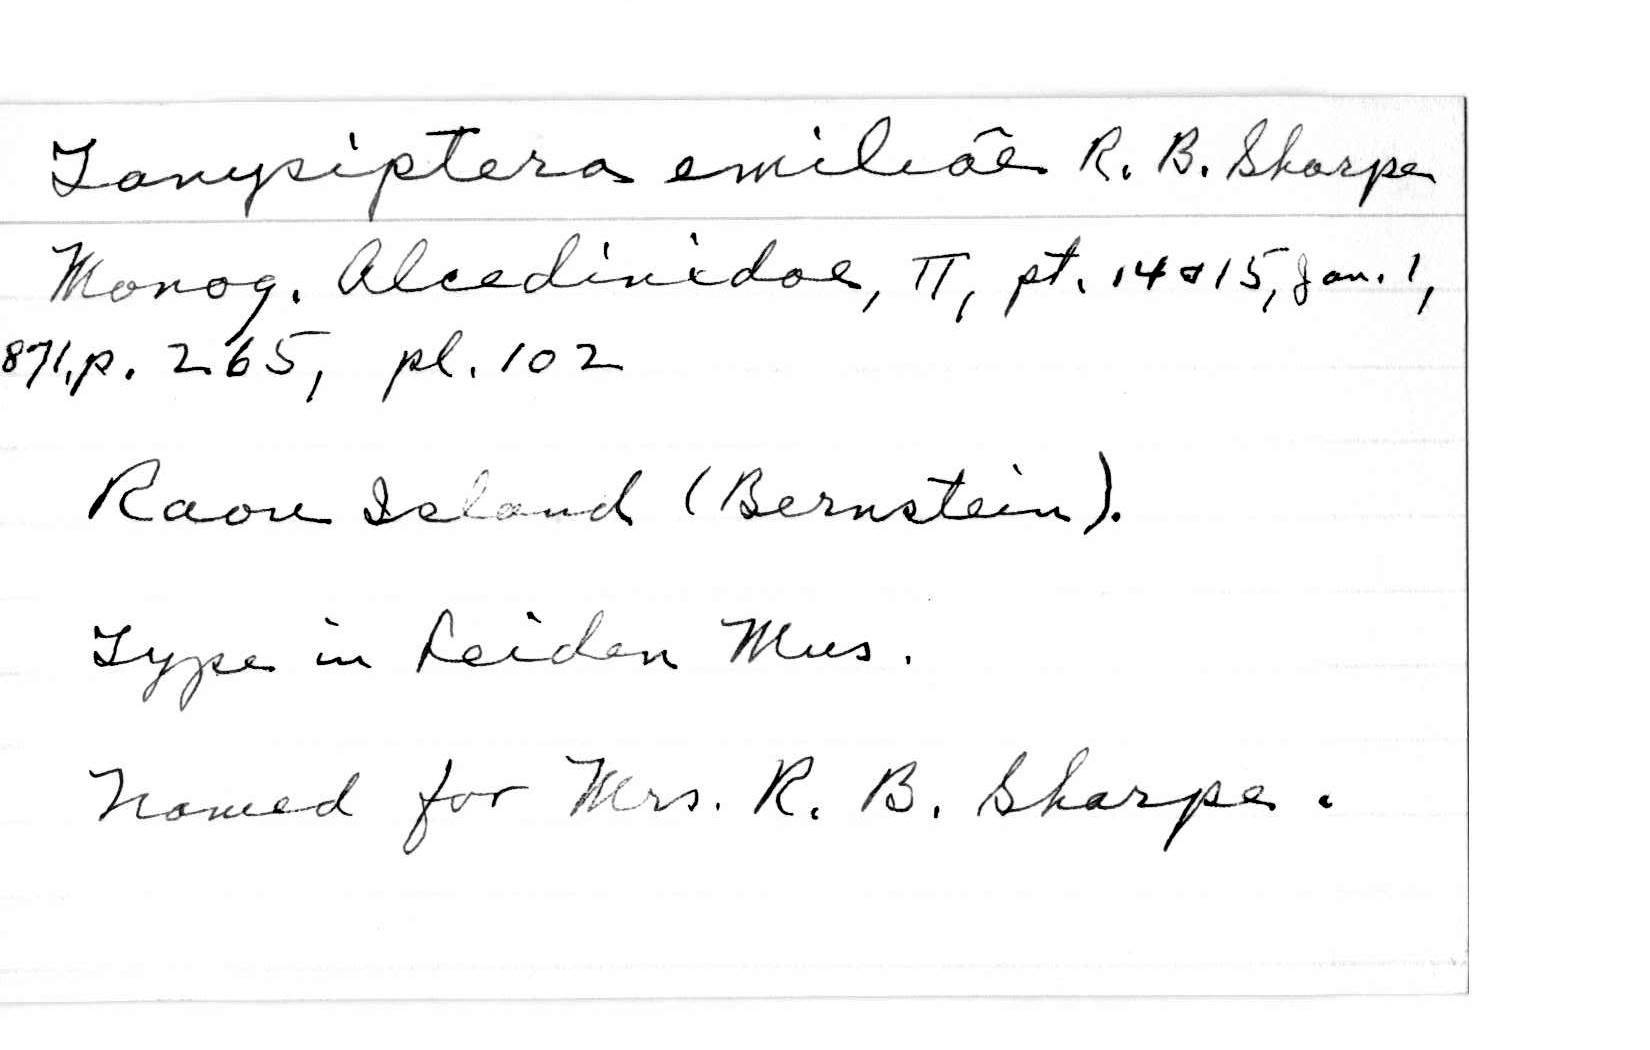 Tanysiptera emiliae R. B. Sharpe
Monog. Alcedinidae, II, pt. 14 & 15, Jan. 1,
871, p. 265, pl. 102
Raou Island (Bernstein).
Type in Leiden Mus.
Named for Mrs. R. B. Sharpe.